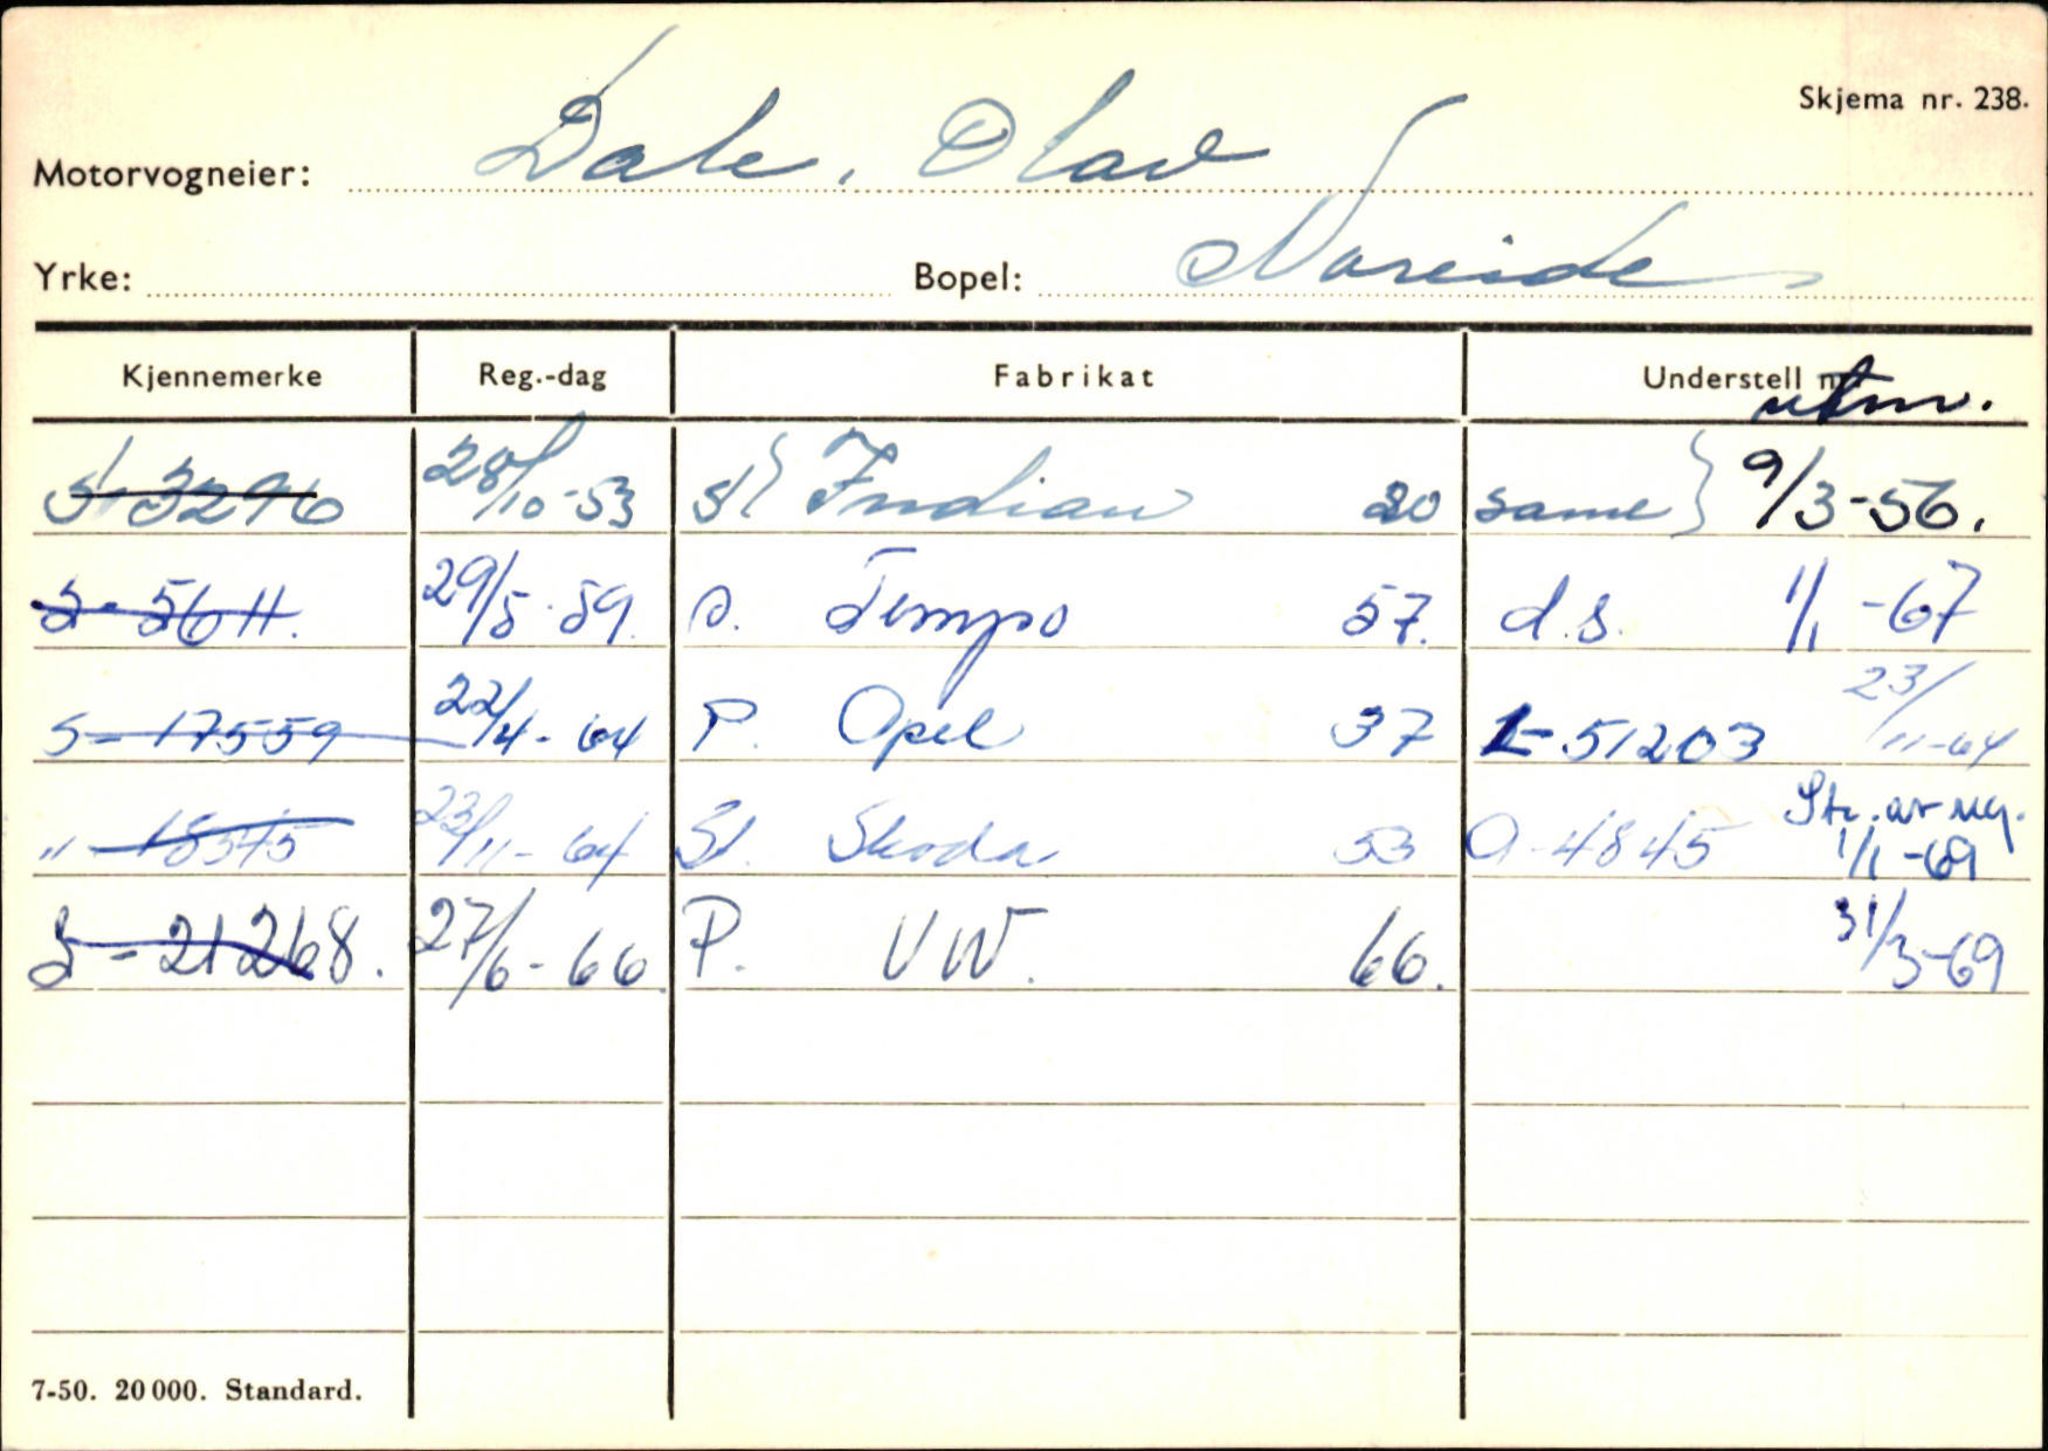 Skjema nr. 238.
Motorvogneier: Dale, Olav
Yrke: Bopel: Nareide
Kjennemerke Reg.-dag Fabrikat Understell nr. utm.
S-3296 28/10-53 Indian 20 same } 9/3-56.
S-5611. 29/5-59. Tempo 57. d.s. 1/1-67
S-17559 22/4-64 P. Opel 37 L-51203 23/11-64
" - 18545 23/11-64 St. Skoda 53 O-4845 Str. av reg. 1/1-69
S-21268. 27/6-66. P. VW. 66. 31/3-69
7-50. 20 000. Standard.